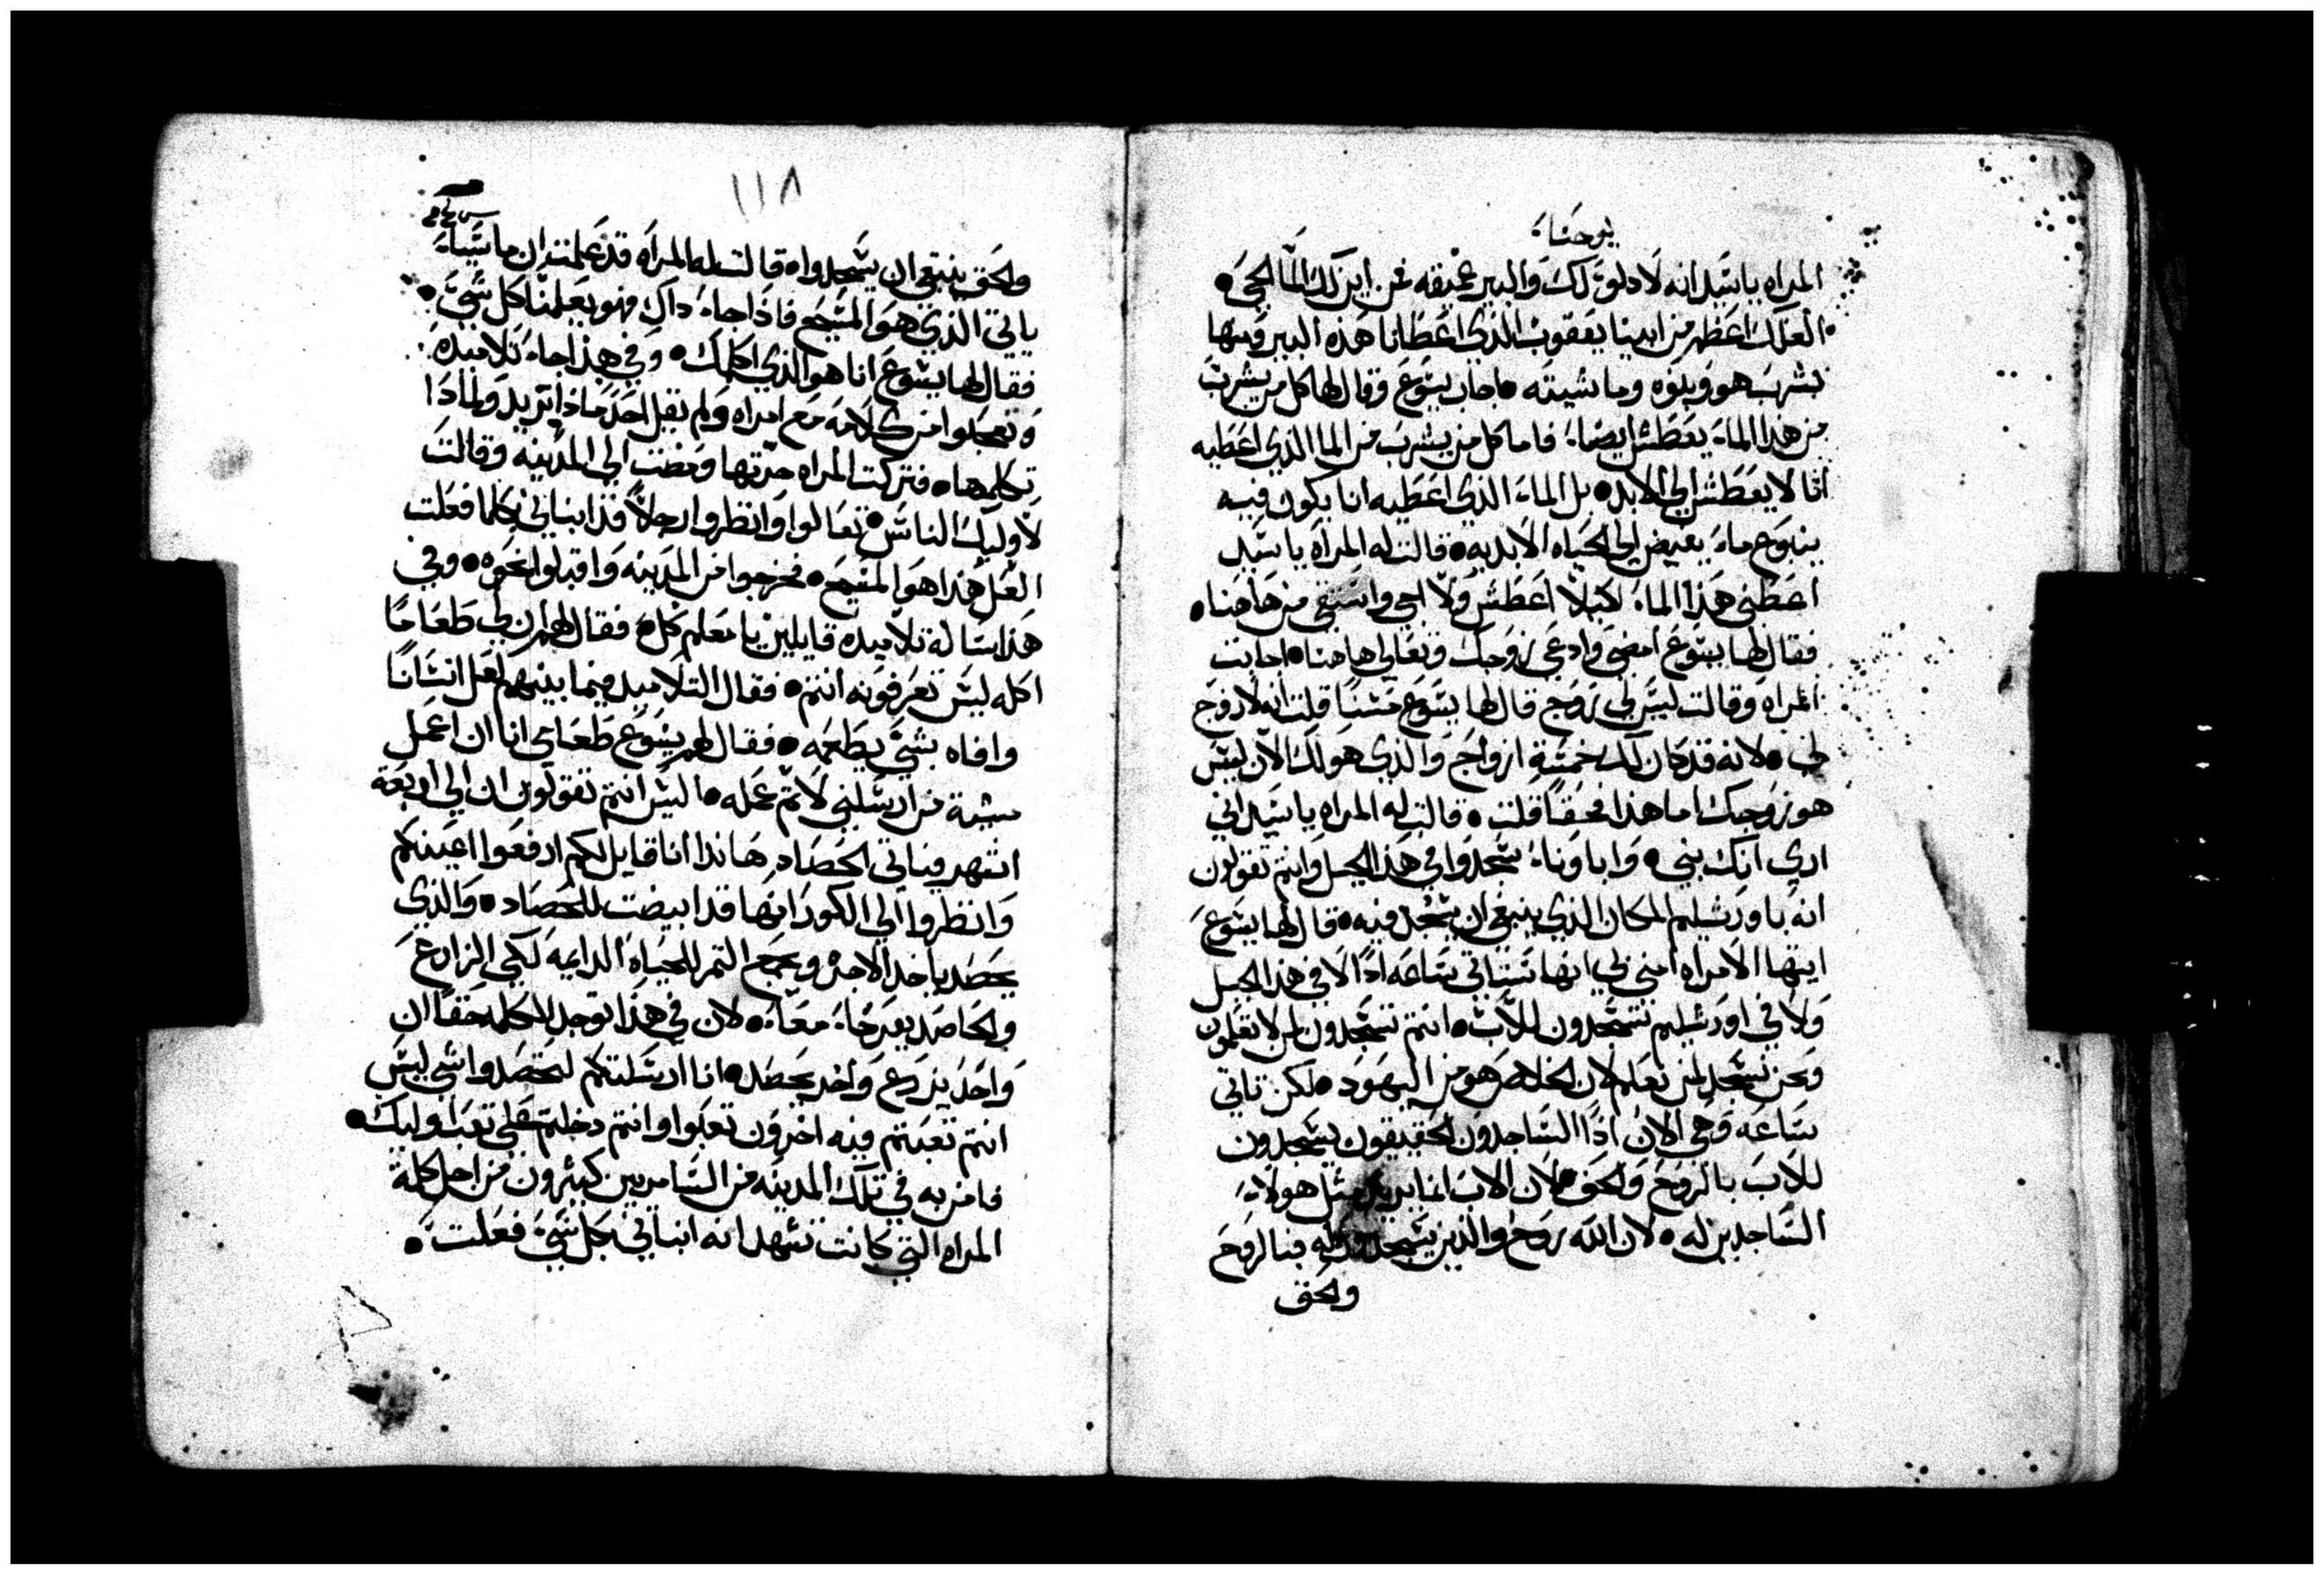 يوحنا
المراه يا سيد انه لا دلو لك والبير عميقه فمن اين لك الما الحي
العلك اعظم من ابينا يعقوب الذي اعطانا هذه البير ومنها
شرب هو وبنوه وماشيته اجاب يسوع وقال لها كل من يشرب
من هذا الماء يعطش ايضا فاما كل من يشرب من الما الذي اعطيه
انا لا يعطش الي الابد بل الماء الذي اعطيه انا يكون فيه
ينبوع ماء يفيض الي الحياه الابديه قالت له المراه يا سيد
اعطني هذا الماء لكيلا اعطش ولا اجي واستقي من هاهنا
فقال لها يسوع امضي وادعي زوجك وتعالي هاهنا اجابت
المراه وقالت ليس لي زوج قال لها يسوع حسنا قلت انه لا زوج
لي لانه قد كان لك خمسة ازواج والذي هو لك الان ليس
هو زوجك اما هذا فحقا قلت قالت له المراه يا سيد اني
اري انك نبي واباونا سجدوا في هذا الجبل وانتم تقولون
انه باورشليم المكان الذي ينبغي ان يسجد فيه قال لها يسوع
ايتها الامراه امني لي انها ستاتي ساعه اذا لا في هذا الجبل
ولا في اورشليم تسجدون للاب انتم تسجدون لمن لا تعلمون
ونحن نسجد لمن نعلم لان الخلاص هو من اليهود لكن تاتي
ساعه وهي الان اذا الساجدون الحقيقون يسجدون
للاب بالروح والحق لان الاب انما يريد مثل هولاء
الساجدين له لان الله روح والذين يسجدون له فبالروح
والحق
١١٨
والحق ينبغي ان يسجدوا قالت له المراه قد علمت ان ماسيا
ياتي الذي هو المسيح فاذا جاء داك فهو يعلمنا كل شي
فقال لها يسوع انا هو الذي اكلمك وفي هذا جاء تلاميده
وتعجبوا من كلامه مع امراه ولم يقل احد ماذا تريد ولماذا
تكلمها فتركت المراه جرتها ومضت الي المدينه وقالت
لاوليك الناس تعالوا وانظروا رجلا قد انباني بكلما فعلت
العل هذا هو المسيح فخرجوا من المدينه واقبلوا نحوه وفي
هذا ساله تلاميده قايلين يا معلم كل فقال لهم ان لي طعاما
اكله ليس تعرفونه انتم فقال التلاميد فيما بينهم لعل انسانا
وافاه بشي يطعمه فقال لهم يسوع طعامي انا ان اعمل
مشية من ارسلني لاتم عمله اليس انتم تقولون ان الي اربعة
اشهر وياتي الحصاد هاندا انا قايل لكم ارفعوا اعينكم
وانظروا الي الكور انها قد ابيضت للحصاد والذي
يحصد ياخد الاجره ويجمع التمر للحياه الدايمه لكي الزارع
والحاصد يفرحا معا لان في هذا توجد الكلمه حقا ان
واحد يزرع واخر يحصد انا ارسلتكم لتحصدوا شي ليس
انتم تعبتم فيه اخرون تعبوا وانتم دخلتم علي تعب اوليك
فامن به في تلك المدينه من السامريين كثيرون من اجل كلمة
المراه التي كانت تشهد انه انباني بكل شي فعلت